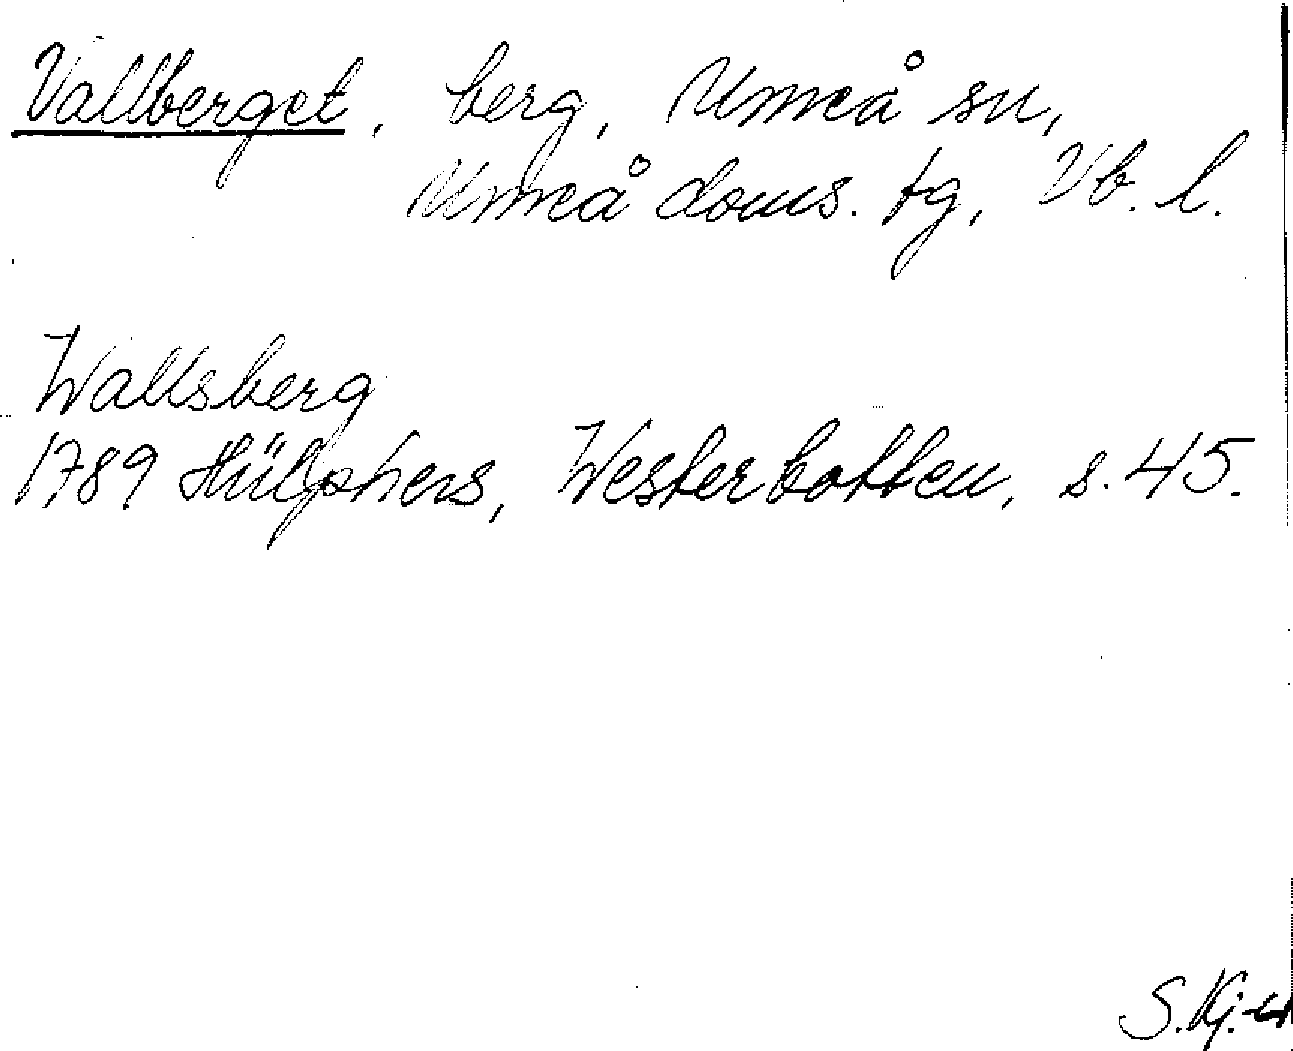 Vallberget, berg, Umeå sn,
Umeå doms. tg, Vb. l.
Wallsberg
1789 Hülphers, Westerbotten, s. 45.